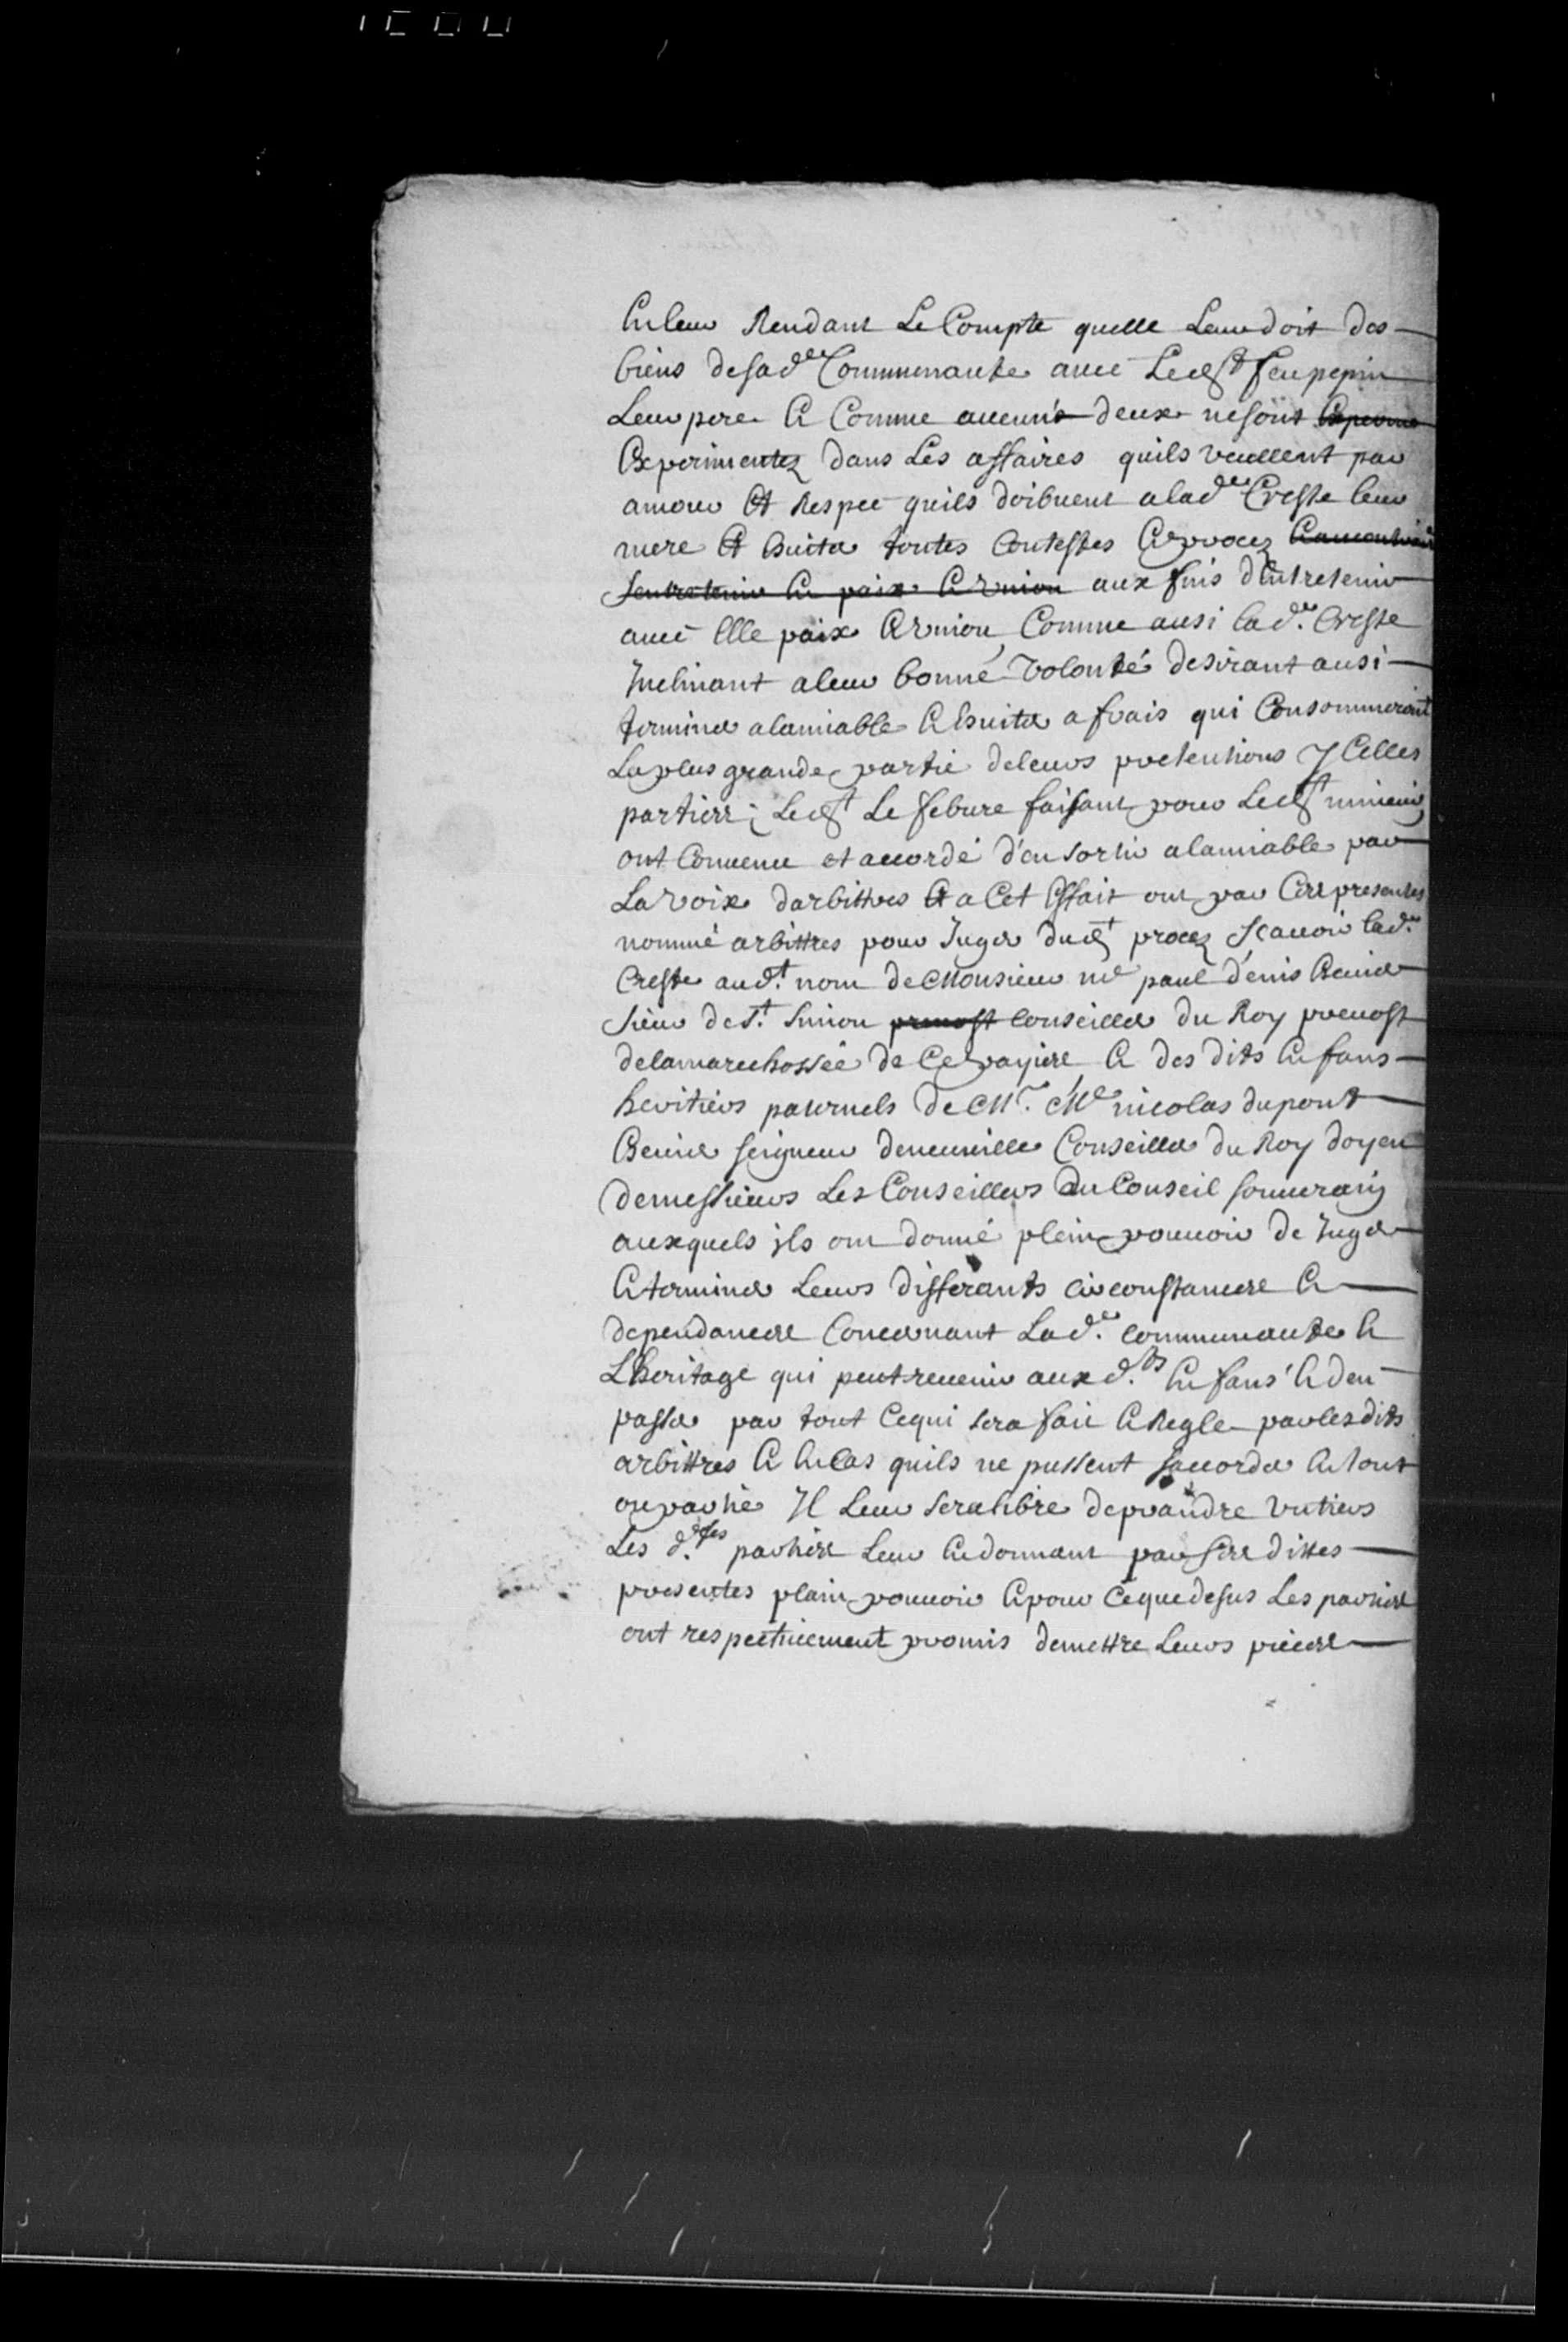 En leur Rendant Le Compte quelle Leur doit des
biens de sad.e Communauté avec Led.t feu pepin
Leur pere Et Comme aucuns deux ne sont
Experimentez dans Les affaires quils veullent par
amour Et Respec quils doibvent a lad.e Creste leur
mere Et Eviter toutes Contestes Et procez
sentretenir En paix Et vnion aux fins dEntretenir
avec Elle paix Et vnion, Comme ausi lad.e Creste
Inclinant a leur bonne volonté desirant ausi
terminer alamiable Et Eviter a frais qui Consommeroint
La plus grande partie de leurs pretentions YCelles
parties; Led.t Le febure faisant pour Led.t mineur
ont Convenu et accordé d'en sortir alamiable par
La voix darbittres Et a Cet Effait ont par Ces presentes
nommé arbittres pour Juger dud.t procez scavoir lad.e
Creste aud.t nom de Monsieur me paul denis Ecuier
sieur de S.t Simon prevost Conseiller du Roy prevost
de la marechossée de Ce payis Et des dits Enfans
heritiers paternels de M.r Me nicolas dupont
Ecuier seigneur de neuville Conseiller du Roy doyen
de messieurs Les Conseillers du Conseil souverain
auxquels ils ont donné plein pouvoir de Juger
Et terminer Leurs differants circonstances Et
dependances Concernant Lad.e communauté Et
LHeritage qui peut revenir aux d.ts Enfans Et den
passer par tout Cequi sera fait Et Regle par lesdits
arbittres Et En Cas quils ne pussent saccorder En tout
ou partie Il Leur sera libre de prandre vn tiers
Les d.tes parties Leur En donnant par ses dittes
presentes plain pouvoir Et pour Ceque desus Les parties
ont respectivement promis de mettre Leurs pieces